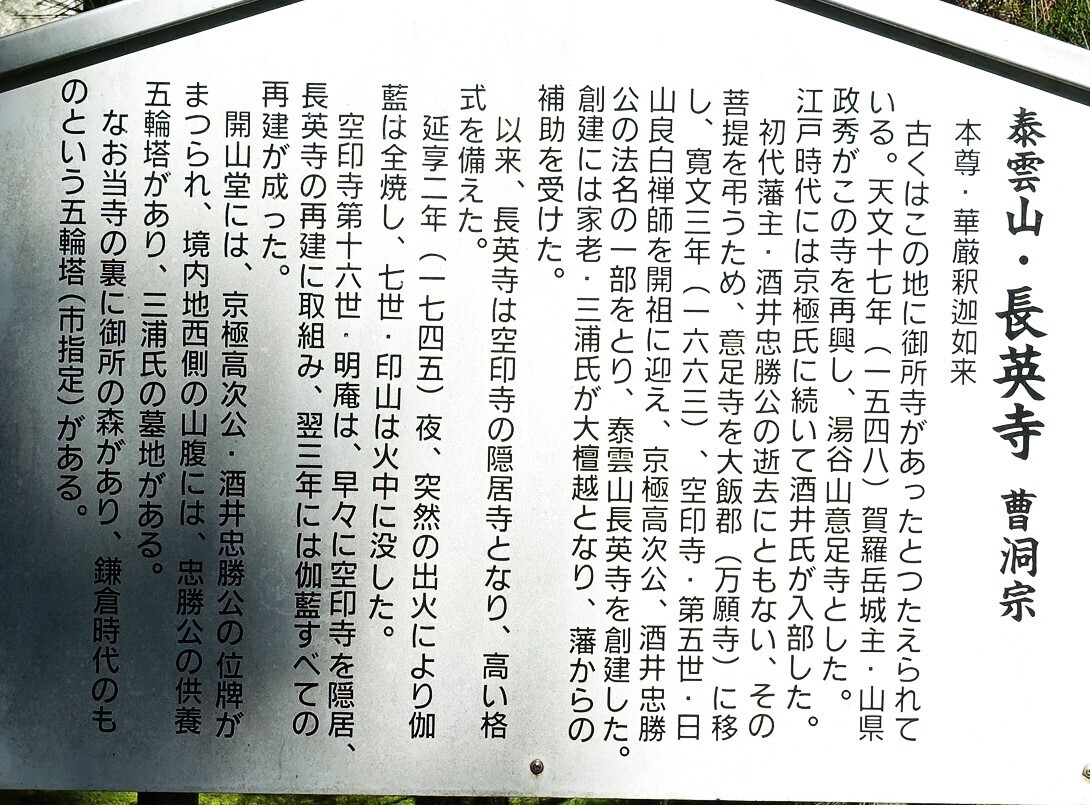 泰雲山・長英寺　曹洞宗
本尊・華厳釈迦如来
古くはこの地に御所寺があったとつたえられて
いる。天文十七年（一五四八）賀羅岳城主・山県
政秀がこの寺を再興し、湯谷山意足寺とした。
江戸時代には京極氏に続いて酒井氏が入部した。
初代藩主・酒井忠勝公の逝去にともない、その
菩提を弔うため、意足寺を大飯郡（万願寺）に移
し、寛文三年（一六六三）、空印寺・第五世・日
山良白禅師を開祖に迎え、京極高次公、酒井忠勝
公の法名の一部をとり、泰雲山長英寺を創建した。
創建には家老・三浦氏が大檀越となり、藩からの
補助を受けた。
以来、長英寺は空印寺の隠居寺となり、高い格
式を備えた。
延享二年（一七四五）夜、突然の出火により伽
藍は全焼し、七世・印山は火中に没した。
空印寺第十六世・明庵は、早々に空印寺を隠居、
長英寺の再建に取組み、翌三年には伽藍すべての
再建が成った。
開山堂には、京極高次公・酒井忠勝公の位牌が
まつられ、境内地西側の山腹には、忠勝公の供養
五輪塔があり、三浦氏の墓地がある。
なお当寺の裏に御所の森があり、鎌倉時代のも
のという五輪塔（市指定）がある。